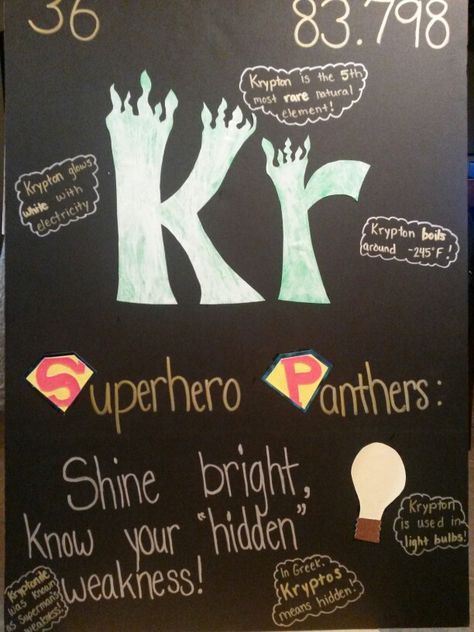 36
83.798
Krypton is the 5th
most rare natural
element!
Kr
Krypton glows
white with
electricity
Krypton boils
around -245°F!
Superhero Panthers:
Shine bright,
know your "hidden"
weakness!
Krypton
is used in
light bulbs!
Kryptonite
was known
as Superman's
weakness!
In Greek,
Kryptos
means hidden.